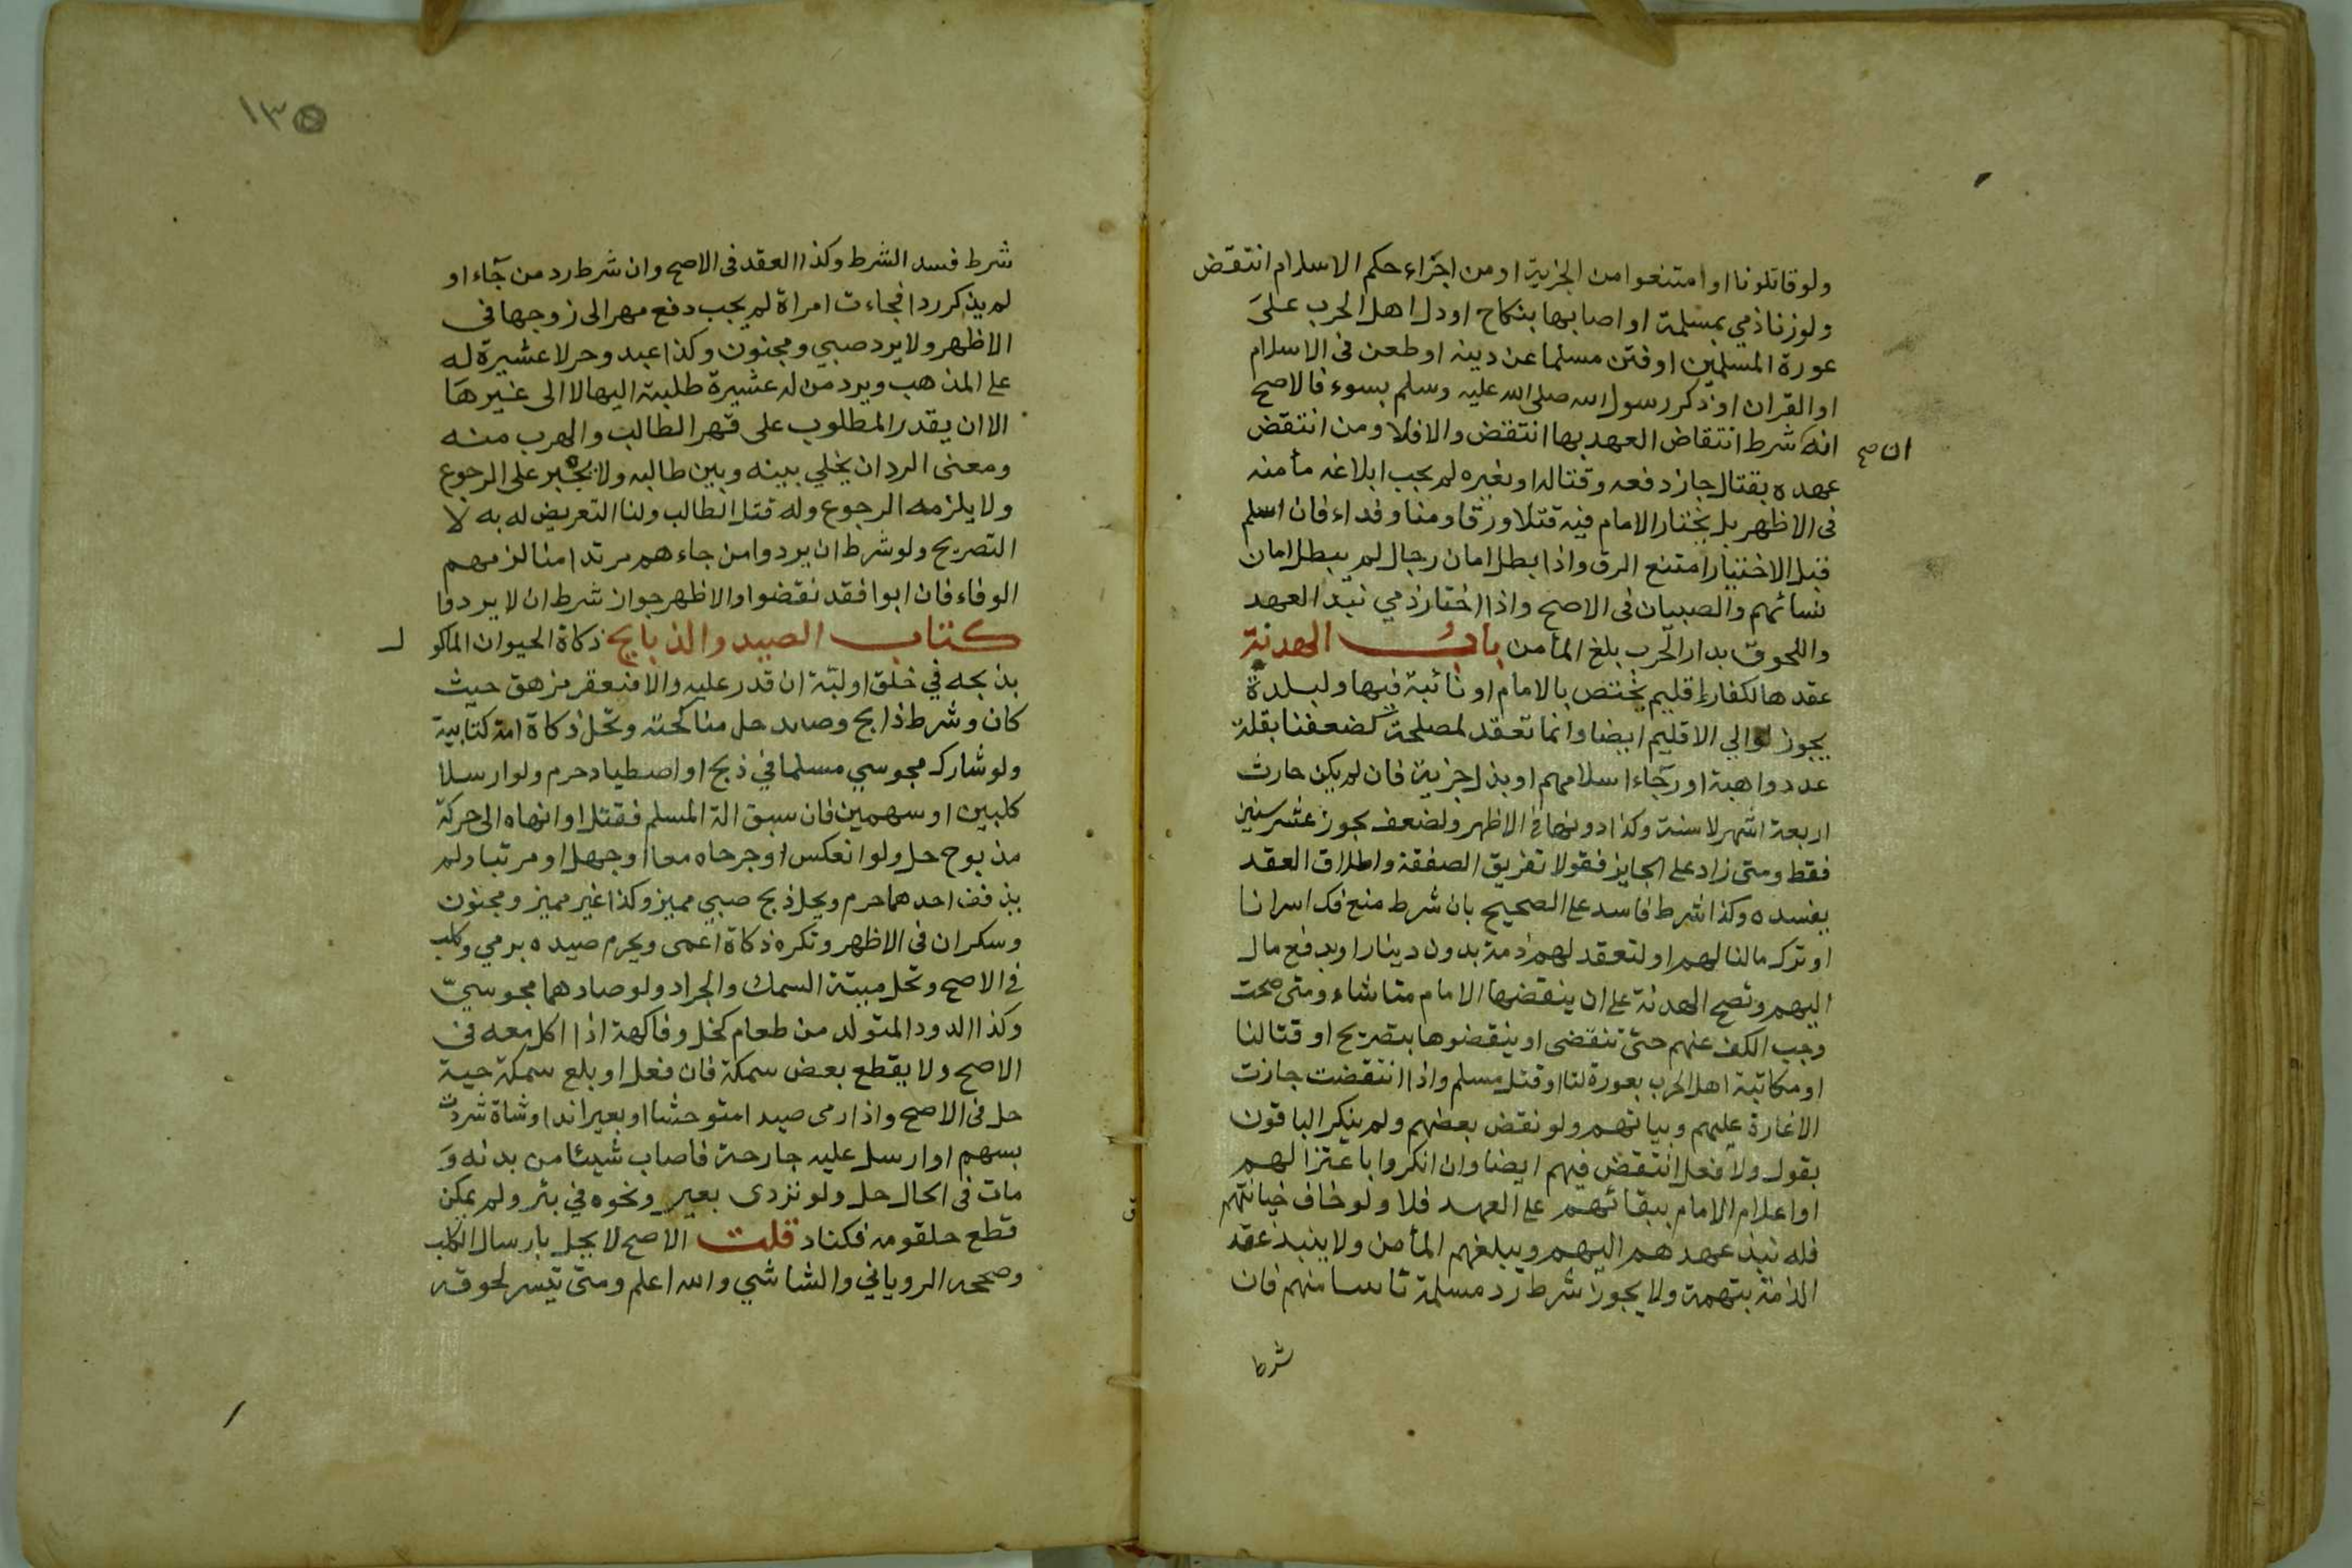 ولو قاتلونا او امتنعوا من الجزية او من اجراء حكم الاسلام انتقض
ولو زنا ذمي بمسلمة او اصابها بنكاح او دل اهل الحرب على
عورة المسلمين او فتن مسلما عن دينه او طعن فى الاسلام
او القران او ذكر رسول الله صلى الله عليه وسلم بسوء فالاصح
انه شرط انتقاض العهد بها انتقض والا فلا ومن انتقض
ان صح
عهده بقتال جاز دفعه وقتاله او بغيره لم يجب ابلاغه مأمنه
فى الاظهر بل يختار الامام فيه قتلا ورقا ومنا وفداء فان اسلم
قبل الاختيار امتنع الرق واذا بطل امان رجال لم يبطل امان
نسائهم والصبيان فى الاصح واذا اختار ذمي نبذ العهد
واللحوق بدار الحرب بلغ المأمن باب الهدنة
عقدها لكفار إقليم يختص بالامام او نائبه فيها ولبلدة
يجوز لوالي الاقليم ايضا وانما تعقد لمصلحة كضعفنا بقلة
عدد واهبة او رجاء اسلامهم او بذل جزية فان لم يكن جازت
اربعة اشهر لا سنة وكذا دونها في الاظهر ولضعف يجوز عشر سنين
فقط ومتى زاد على الجايز فقولا تفريق الصفقة واطلاق العقد
يفسده وكذا شرط فاسد على الصحيح بان شرط منع فك اسرانا
او ترك مالنا لهم او لتعقد لهم ذمة بدون دينار او بدفع مال
اليهم وتصح الهدنة على ان ينقضها الامام متا شاء ومتى صحت
وجب الكف عنهم حتى تنقضى او ينقضوها بتصريح او قتالنا
او مكاتبة اهل الحرب بعورة لنا او قتل مسلم واذا انتقضت جازت
الاغارة عليهم وبياتهم ولو نقض بعضهم ولم ينكر الباقون
بقول ولا فعل انتقض فيهم ايضا وان انكروا باعتزالهم
او اعلام الامام ببقائهم على العهد فلا ولو خاف خيانتهم
فله نبذ عهدهم اليهم ويبلغهم المأمن ولا ينبذ عقد
الذمة بتهمة ولا يجوز شرط رد مسلمة تاتينا منهم فان
شرط
١٣٥
شرط فسد الشرط وكذا العقد فى الاصح وان شرط رد من جآء او
لم يذكر ردا فجاءت امراة لم يجب دفع مهر الى زوجها فى
الاظهر ولا يرد صبي ومجنون وكذا عبد وحر لا عشيرة له
على المذهب ويرد من له عشيرة طلبته اليها لا الى غيرها
الا ان يقدر المطلوب على قهر الطالب والهرب منه
ومعنى الرد ان يخلي بينه وبين طالبه ولا يجبر على الرجوع
ولا يلزمه الرجوع وله قتل الطالب ولنا التعريض له به لا
التصريح ولو شرط ان يردوا من جاءهم مرتدا منا لزمهم
الوفاء فان ابوا فقد نقضوا والاظهر جواز شرط ان لا يردوا
كتاب الصيد والذبايح ذكاة الحيوان الماكول
بذبحه في حلق او لبة ان قدر عليه والا فبعقر مزهق حيث
كان وشرط ذابح وصايد حل مناكحته وتحل ذكاة امة كتابية
ولو شارك مجوسي مسلما في ذبح او اصطياد حرم ولو ارسلا
كلبين او سهمين فان سبق الة المسلم فقتل او انهاه الى حركة
مذبوح حل ولو انعكس او جرحاه معا او جهل او مرتبا ولم
يذفف احدهما حرم ويحل ذبح صبي مميز وكذا غير مميز ومجنون
وسكران فى الاظهر وتكره ذكاة اعمى ويحرم صيده برمي وكلب
في الاصح وتحل ميتة السمك والجراد ولو صادهما مجوسيّ
وكذا الدود المتولد من طعام كخل وفاكهة اذا اكل معه فى
الاصح ولا يقطع بعض سمكة فان فعل او بلع سمكة حية
حل فى الاصح واذا رمى صيدا متوحشا او بعيرا ند او شاة شردت
بسهم او ارسل عليه جارحة فاصاب شيئا من بدنه و
مات فى الحال حل ولو تردى بعير ونحوه في بئر ولم يمكن
قطع حلقومه فكناد قلت الاصح لا يحل بارسال الكلب
وصححه الروياني والشاشي والله اعلم ومتى تيسر لحوقه